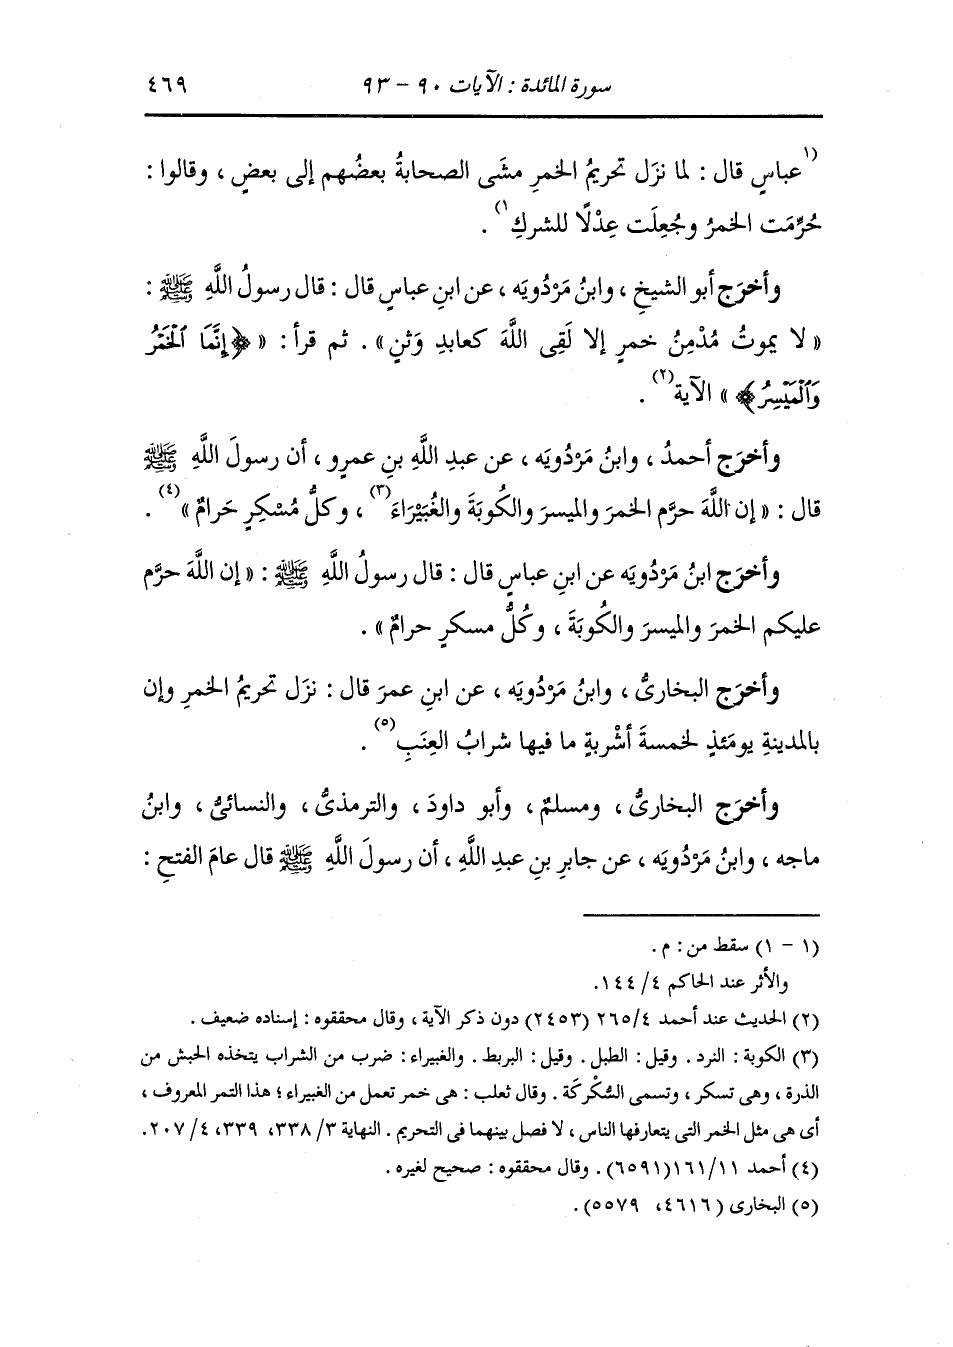 سورة المائدة : الآيات ٩٠ - ٩٣ ٤٦٩
(١عباسٍ قال : لما نزَل تحريمُ الخمرِ مشَى الصحابةُ بعضُهم إلى بعضٍ ، وقالوا :
حُرِّمَت الخمرُ وجُعِلَت عِدْلًا للشركِ١) .
وأخرَج أبو الشيخِ ، وابنُ مَرْدُويَه ، عن ابنِ عباسٍ قال : قال رسولُ اللَّهِ ﷺ :
« لا يموتُ مُدْمِنُ خمرٍ إلا لَقِى اللَّهَ كعابدِ وَثنٍ » . ثم قرأ : « ﴿إِنَّمَا ٱلْخَمْرُ
وَٱلْمَيْسِرُ﴾ » الآية(٢) .
وأخرَج أحمدُ ، وابنُ مَرْدُويَه ، عن عبدِ اللَّهِ بنِ عمرٍو ، أن رسولَ اللَّهِ ﷺ
قال : « إن اللَّهَ حرَّم الخمرَ والميسرَ والكُوبَةَ والغُبَيْرَاءَ(٣) ، وكلُّ مُسْكِرٍ حَرامٌ »(٤) .
وأخرَج ابنُ مَرْدُويَه عن ابنِ عباسٍ قال : قال رسولُ اللَّهِ ﷺ : « إن اللَّهَ حرَّم
عليكم الخمرَ والميسرَ والكُوبَةَ ، وكُلُّ مسكرٍ حرامٌ » .
وأخرَج البخارىُّ ، وابنُ مَرْدُويَه ، عن ابنِ عمرَ قال : نزَل تحريمُ الخمرِ وإن
بالمدينةِ يومَئذٍ لخمسةَ أشْربةٍ ما فيها شرابُ العِنَبِ(٥) .
وأخرَج البخارىُّ ، ومسلمٌ ، وأبو داودَ ، والترمذىُّ ، والنسائىُّ ، وابنُ
ماجه ، وابنُ مَرْدُويَه ، عن جابرِ بنِ عبدِ اللَّهِ ، أن رسولَ اللَّهِ ﷺ قال عامَ الفتحِ :
(١ - ١) سقط من : م .
والأثر عند الحاكم ٤/ ١٤٤.
(٢) الحديث عند أحمد ٢٦٥/٤ (٢٤٥٣) دون ذكر الآية ، وقال محققوه : إسناده ضعيف .
(٣) الكوبة : النرد . وقيل : الطبل . وقيل : البربط . والغبيراء : ضرب من الشراب يتخذه الحبش من
الذرة ، وهى تسكر ، وتسمى السُّكْركَة . وقال ثعلب : هى خمر تعمل من الغبيراء ؛ هذا التمر المعروف ،
أى هى مثل الخمر التى يتعارفها الناس ، لا فصل بينهما فى التحريم . النهاية ٣/ ٣٣٨، ٣٣٩، ٤/ ٢٠٧.
(٤) أحمد ١٦١/١١(٦٥٩١) . وقال محققوه : صحيح لغيره .
(٥) البخارى (٤٦١٦، ٥٥٧٩) .